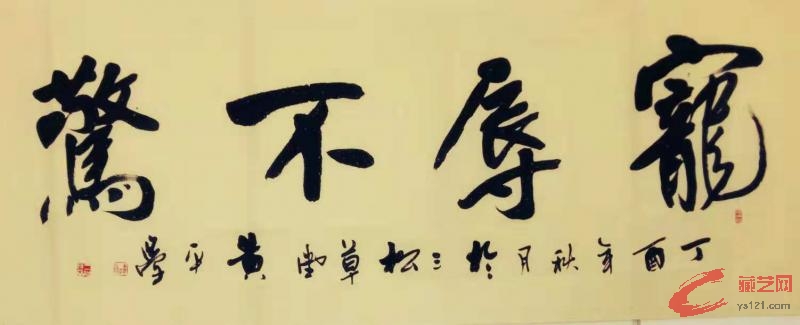 寵辱不驚
丁酉年秋月於三松草堂黄平
藏艺网
ys121.com